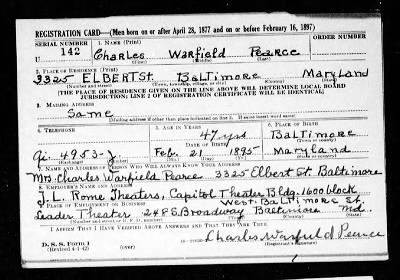 REGISTRATION CARD—(Men born on or after April 28, 1877 and on or before February 16, 1897)
SERIAL NUMBER 1. NAME (Print) ORDER NUMBER
U 142 Charles Warfield Pearce
(First) (Middle) (Last)
2. PLACE OF RESIDENCE (Print)
3325 ELBERT St. Baltimore Maryland
(Number and street) (Town, township, village, or city) (County) (State)
[THE PLACE OF RESIDENCE GIVEN ON THE LINE ABOVE WILL DETERMINE LOCAL BOARD
JURISDICTION; LINE 2 OF REGISTRATION CERTIFICATE WILL BE IDENTICAL]
3. MAILING ADDRESS
Same
[Mailing address if other than place indicated on line 2. If same insert word same]
4. TELEPHONE 5. AGE IN YEARS 6. PLACE OF BIRTH
47 yrs Baltimore
DATE OF BIRTH
Gi. 4953-J Feb. 21 1895 Maryland
7. NAME AND ADDRESS OF PERSON WHO WILL ALWAYS KNOW YOUR ADDRESS
Mrs. Charles Warfield Pearce 3325 Elbert St Baltimore
8. EMPLOYER'S NAME AND ADDRESS
J. L. Rome Theaters, Capitol Theater Bldg. 1600 block
West Baltimore St.
9. PLACE OF EMPLOYMENT OR BUSINESS
Leader Theater 248 S. Broadway Baltimore Md.
I AFFIRM THAT I HAVE VERIFIED ABOVE ANSWERS AND THAT THEY ARE TRUE.
D. S. S. Form 1
(Revised 4-1-42) Charles Warfield Pearce
(Registrant's signature)